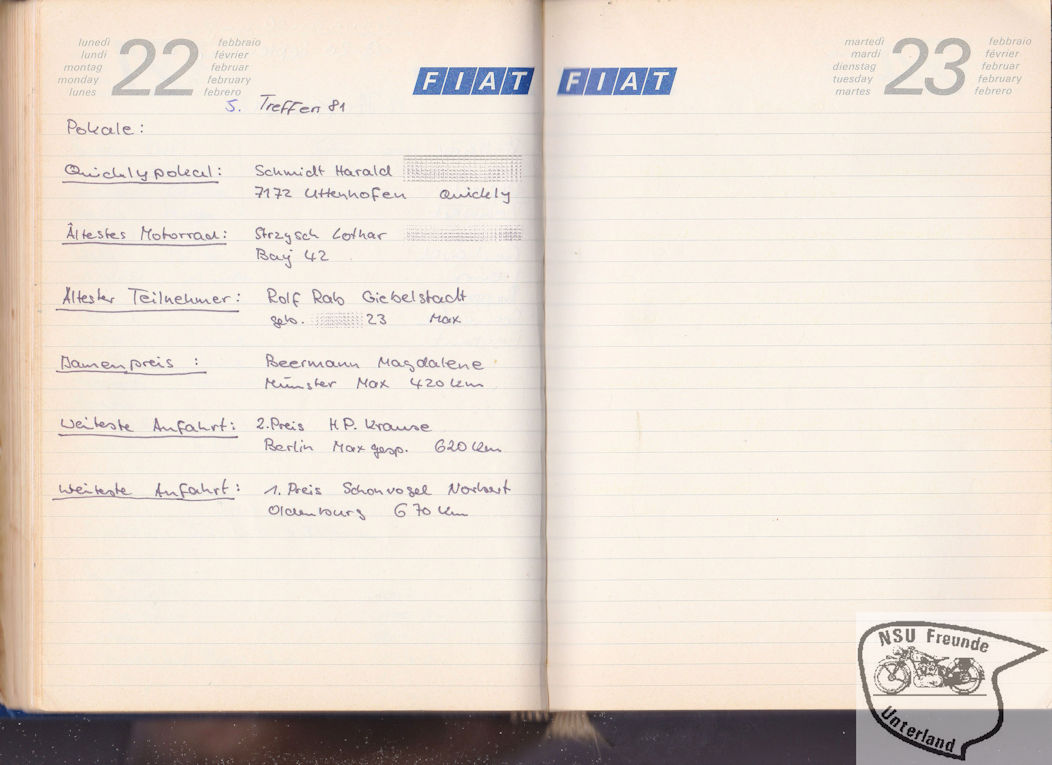 lunedì
lundi
montag
monday
lunes
22
febbraio
février
februar
february
febrero
FIAT
5. Treffen 81
Pokale:
Quicklypokal: Schmidt Harald
7172 Uttenhofen Quickly
Ältestes Motorrad: Strzysch Lothar
Bauj 42
Ältester Teilnehmer: Rolf Rab Giebelstadt
geb. 23 Max
Damenpreis : Beermann Magdalene
Münster Max 420 km
Weiteste Anfahrt: 2.Preis H.P. Krause
Berlin Max gesp. 620 km
Weiteste Anfahrt: 1. Preis Schonvogel Norbert
Oldenburg 670 km
FIAT
martedì
mardi
dienstag
tuesday
martes
23
febbraio
février
februar
february
febrero
NSU Freunde
Unterland